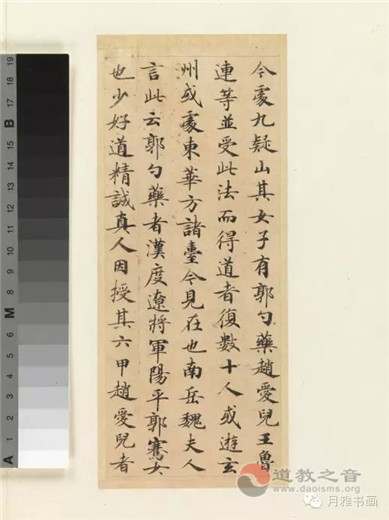 今處九疑山其女子有郭勺藥趙愛兒王魯
連等並受此法而得道者復數十人或遊玄
州或處東華方諸臺今見在也南岳魏夫人
言此云郭勺藥者漢度遼將軍陽平郭騫女
也少好道精誠真人因授其六甲趙愛兒者
A 1 2 3 4 5 6 M 8 9 10 11 12 13 14 15 B 17 18 19
道教之音
www.daoisms.org
月雅书画